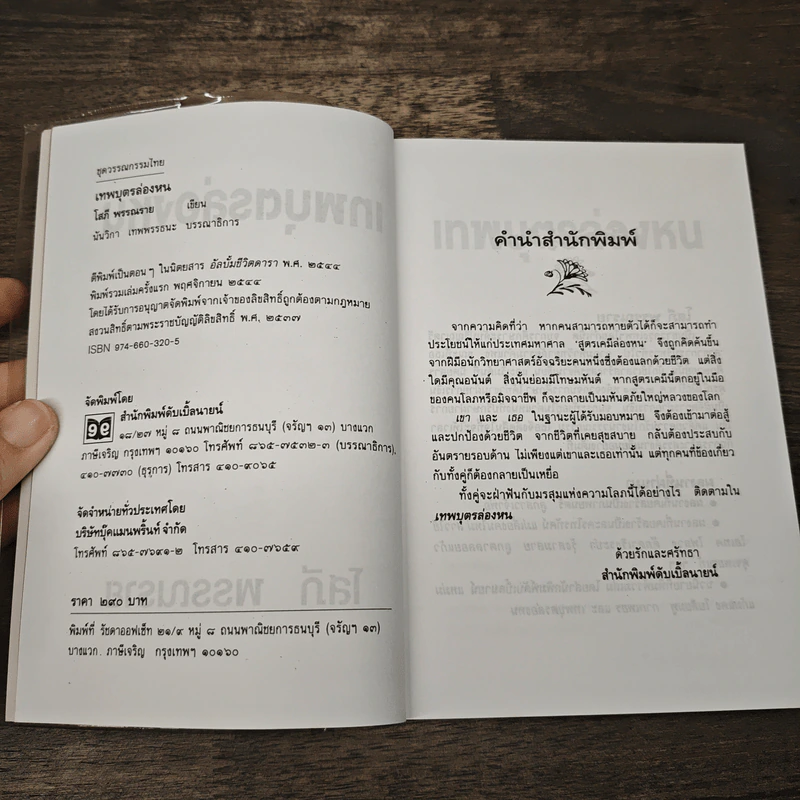 ชุดวรรณกรรมไทย
เทพบุตรล่องหน
โสภี พรรณราย เขียน
นันวิกา เทพพรรธนะ บรรณาธิการ
ตีพิมพ์เป็นตอนๆ ในนิตยสาร อัลบั้มชีวิตดารา พ.ศ. ๒๕๔๔
พิมพ์รวมเล่มครั้งแรก พฤศจิกายน ๒๕๔๔
โดยได้รับการอนุญาตจัดพิมพ์จากเจ้าของลิขสิทธิ์ถูกต้องตามกฎหมาย
สงวนสิทธิ์ตามพระราชบัญญัติลิขสิทธิ์ พ.ศ. ๒๕๓๗
ISBN 974-660-320-5
จัดพิมพ์โดย
สำนักพิมพ์ดับเบิ้ลนายน์
๑๘/๒๗ หมู่ ๘ ถนนพาณิชยการธนบุรี (จรัญฯ ๑๓) บางแวก
ภาษีเจริญ กรุงเทพฯ ๑๐๑๖๐ โทรศัพท์ ๘๖๕-๗๕๓๒-๓ (บรรณาธิการ),
๔๑๐-๗๗๓๐ (ธุรการ) โทรสาร ๔๑๐-๙๐๖๕
จัดจำหน่ายทั่วประเทศโดย
บริษัทบุ๊คแมนพริ้นท์ จำกัด
โทรศัพท์ ๘๖๕-๗๖๙๑-๒ โทรสาร ๔๑๐-๗๖๕๙
ราคา ๒๙๐ บาท
พิมพ์ที่ รัชดาออฟเซ็ท ๒๑/๙ หมู่ ๘ ถนนพาณิชยการธนบุรี (จรัญฯ ๑๓)
บางแวก ภาษีเจริญ กรุงเทพฯ ๑๐๑๖๐
คำนำสำนักพิมพ์
จากความคิดที่ว่า หากคนสามารถหายตัวได้ก็จะสามารถทำ
ประโยชน์ให้แก่ประเทศมหาศาล "สูตรเคมีล่องหน" จึงถูกคิดค้นขึ้น
จากฝีมือนักวิทยาศาสตร์อัจฉริยะคนหนึ่งซึ่งต้องแลกด้วยชีวิต แต่สิ่ง
ใดมีคุณอนันต์ สิ่งนั้นย่อมมีโทษมหันต์ หากสูตรเคมีนี้ตกอยู่ในมือ
ของคนโลภหรือมิจฉาชีพ ก็จะกลายเป็นมหันตภัยใหญ่หลวงของโลก
เขา และ เธอ ในฐานะผู้ได้รับมอบหมาย จึงต้องเข้ามาต่อสู้
และปกป้องด้วยชีวิต จากชีวิตที่เคยสุขสบาย กลับต้องประสบกับ
อันตรายรอบด้าน ไม่เพียงแต่เขาและเธอเท่านั้น แต่ทุกคนที่ข้องเกี่ยว
กับทั้งคู่ก็ต้องกลายเป็นเหยื่อ
ทั้งคู่จะฝ่าฟันกับมรสุมแห่งความโลภนี้ได้อย่างไร ติดตามใน
เทพบุตรล่องหน
ด้วยรักและศรัทธา
สำนักพิมพ์ดับเบิ้ลนายน์